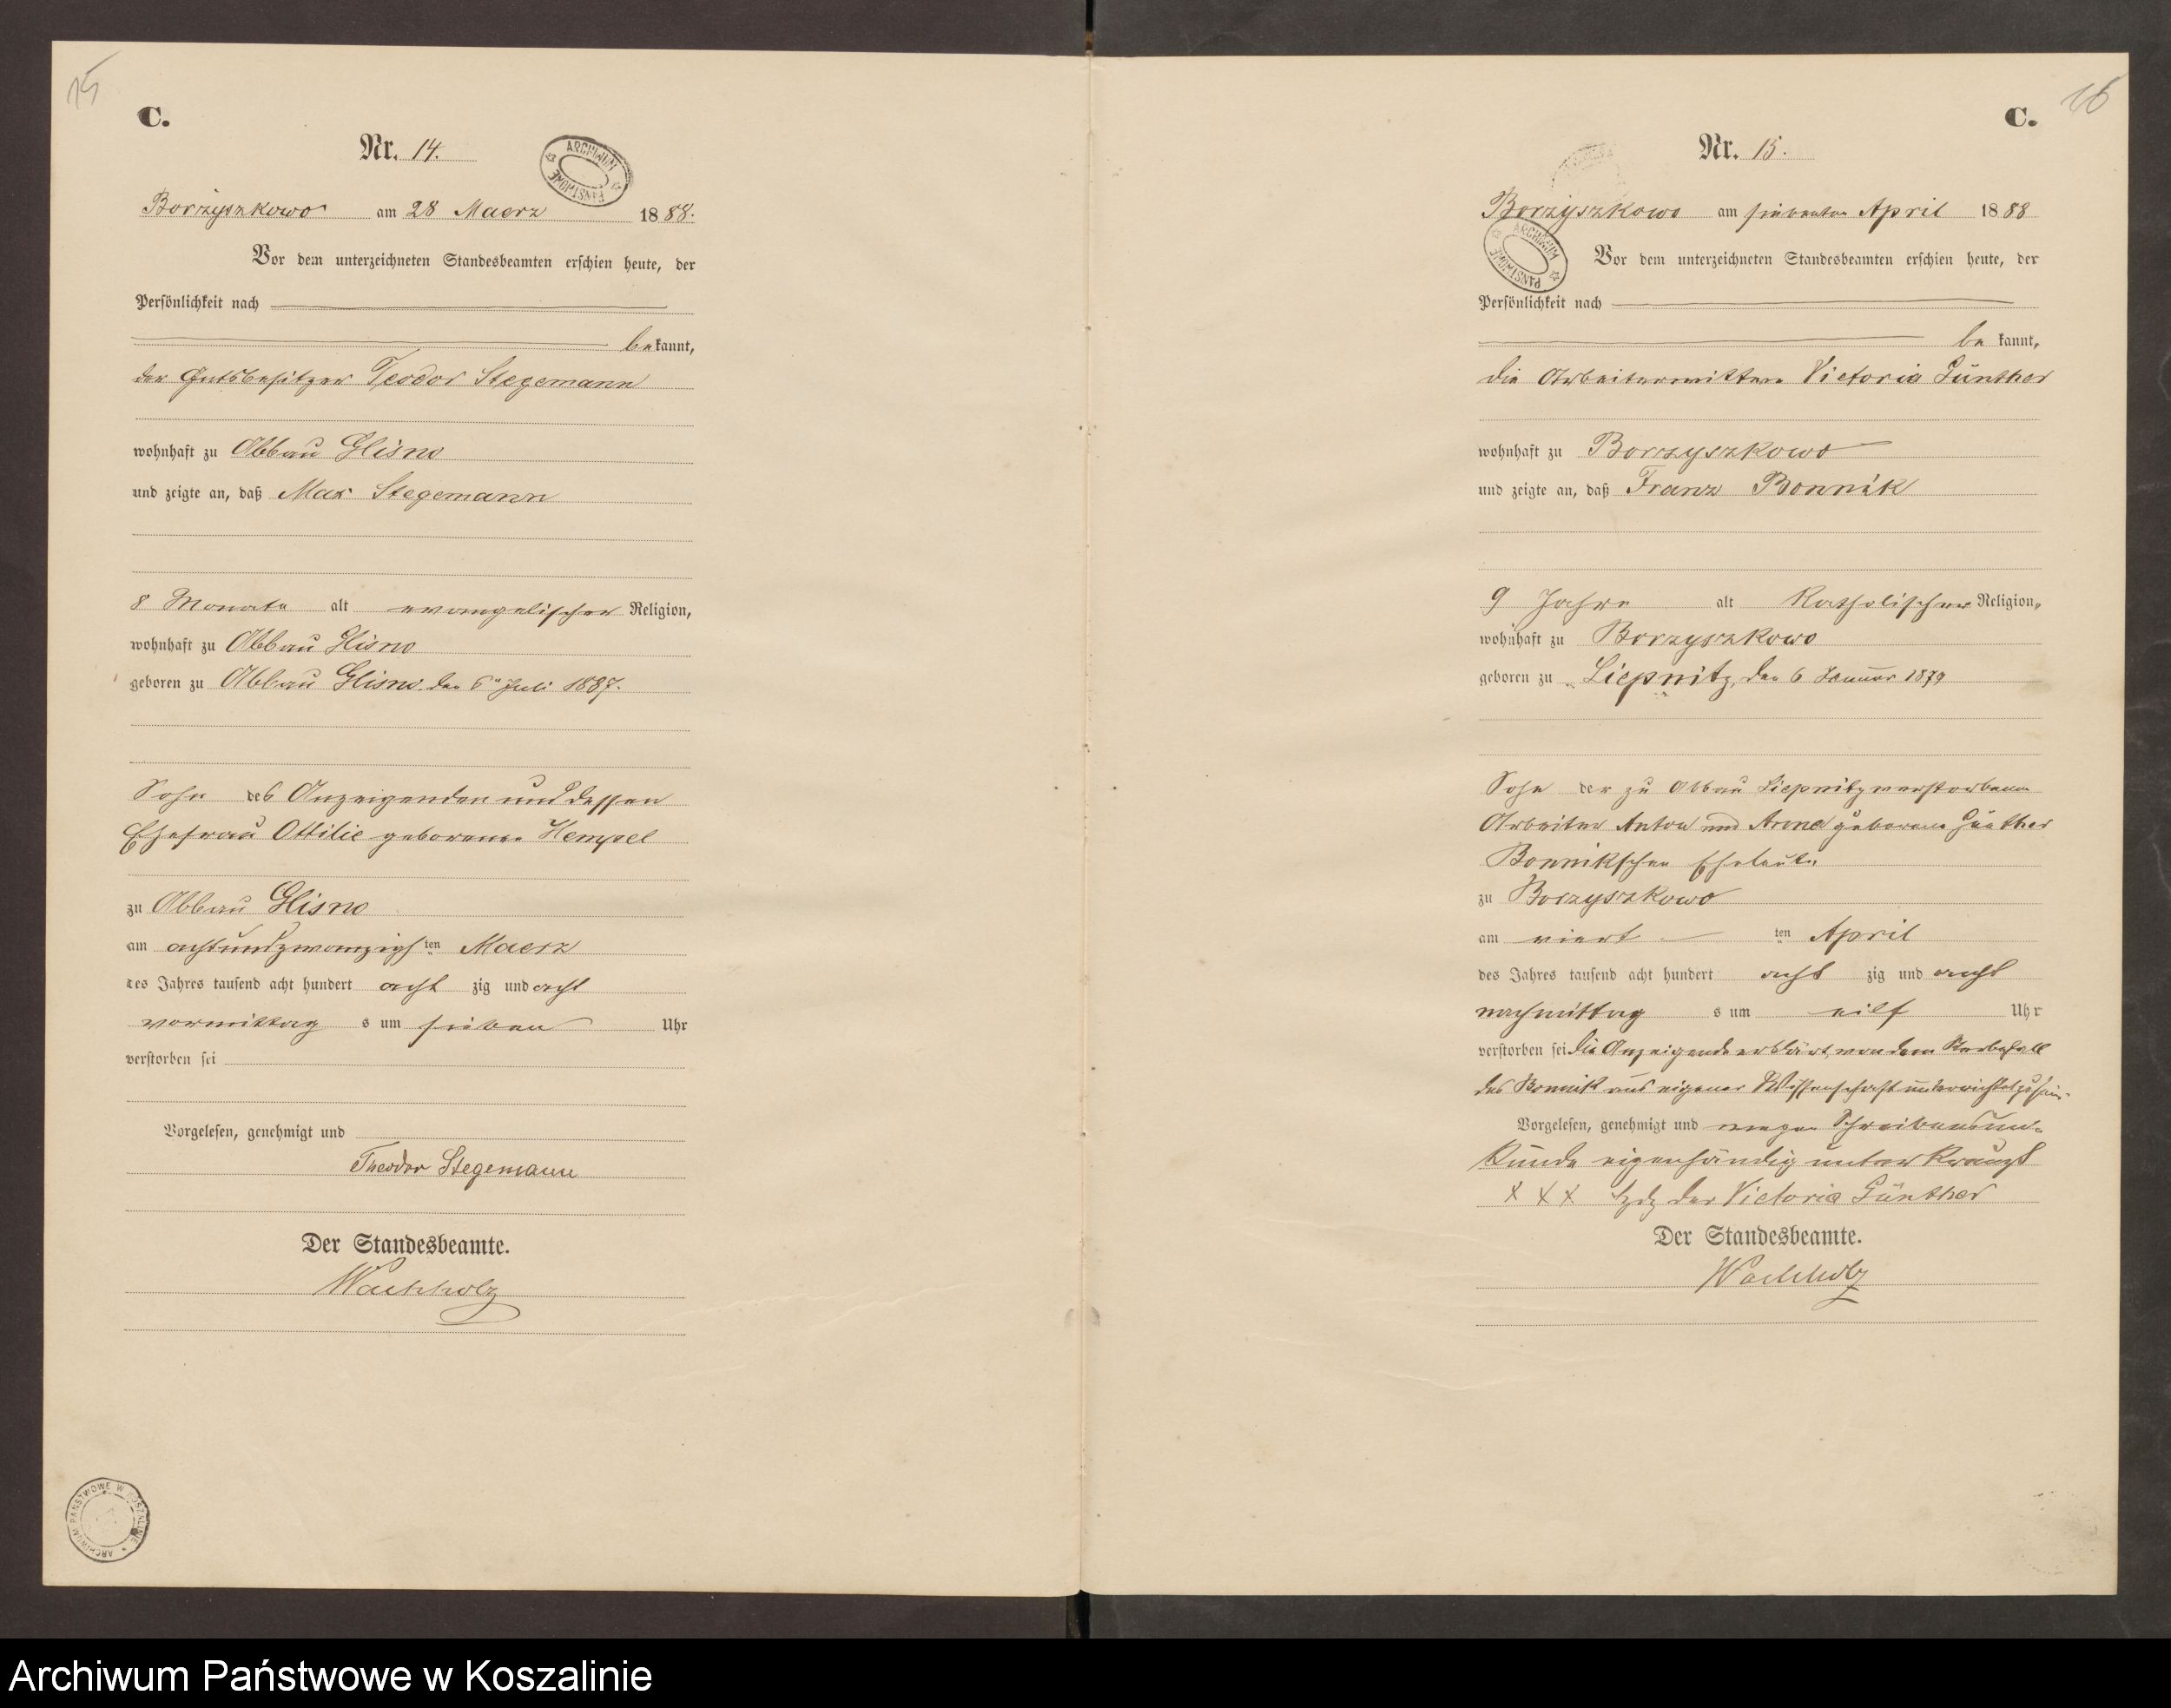 15
C.
Nr. 14.
ARCHIWUM PAŃSTWOWE
Borzyszkowo am 28 Maerz 1888.
Vor dem unterzeichneten Standesbeamten erschien heute, der
Persönlichkeit nach
bekannt,
der Gutsbesitzer Teodor Stegemann
wohnhaft zu Abbau Glisno
und zeigte an, daß Max Stegemann
8 Monate alt evangelischer Religion,
wohnhaft zu Abbau Glisno
geboren zu Abbau Glisno den 6ⁿ Juli 1887.
Sohn des Anzeigenden und dessen
Ehefrau Ottilie geborenen Hempel
zu Abbau Glisno
am achtundzwanzigsten Maerz
des Jahres tausend acht hundert acht zig und acht
vormittag s um sieben Uhr
verstorben sei
Vorgelesen, genehmigt und
Theodor Stegemann
Der Standesbeamte.
Wachholz
ARCHIWUM PAŃSTWOWE W KOSZALINIE
16
C.
Nr. 15.
Borzyszkowo am siebenten April 1888
ARCHIWUM PAŃSTWOWE
Vor dem unterzeichneten Standesbeamten erschien heute, der
Persönlichkeit nach
be kannt,
die Arbeiterwittwe Victoria Günther
wohnhaft zu Borzyszkowo
und zeigte an, daß Franz Bonnik
9 Jahre alt Katholischer Religion,
wohnhaft zu Borzyszkowo
geboren zu Liepnitz, den 6 Januar 1879
Sohn der zu Abbau Liepnitz verstorbenen
Arbeiter Anton und Anna geborene Günther
Bonnikschen Eheleute
zu Borzyszkowo
am viert ten April
des Jahres tausend acht hundert acht zig und acht
nachmittag s um eilf Uhr
verstorben sei Die Anzeigende erklärt, von dem Sterbefall
des Bonnik aus eigener Wissenschaft unterrichtet zu sein.
Vorgelesen, genehmigt und wegen Schreibensun-
kunde eigenhändig unterkreuzt
x x x Hdz der Victoria Günther
Der Standesbeamte.
Wachholz
Archiwum Państwowe w Koszalinie